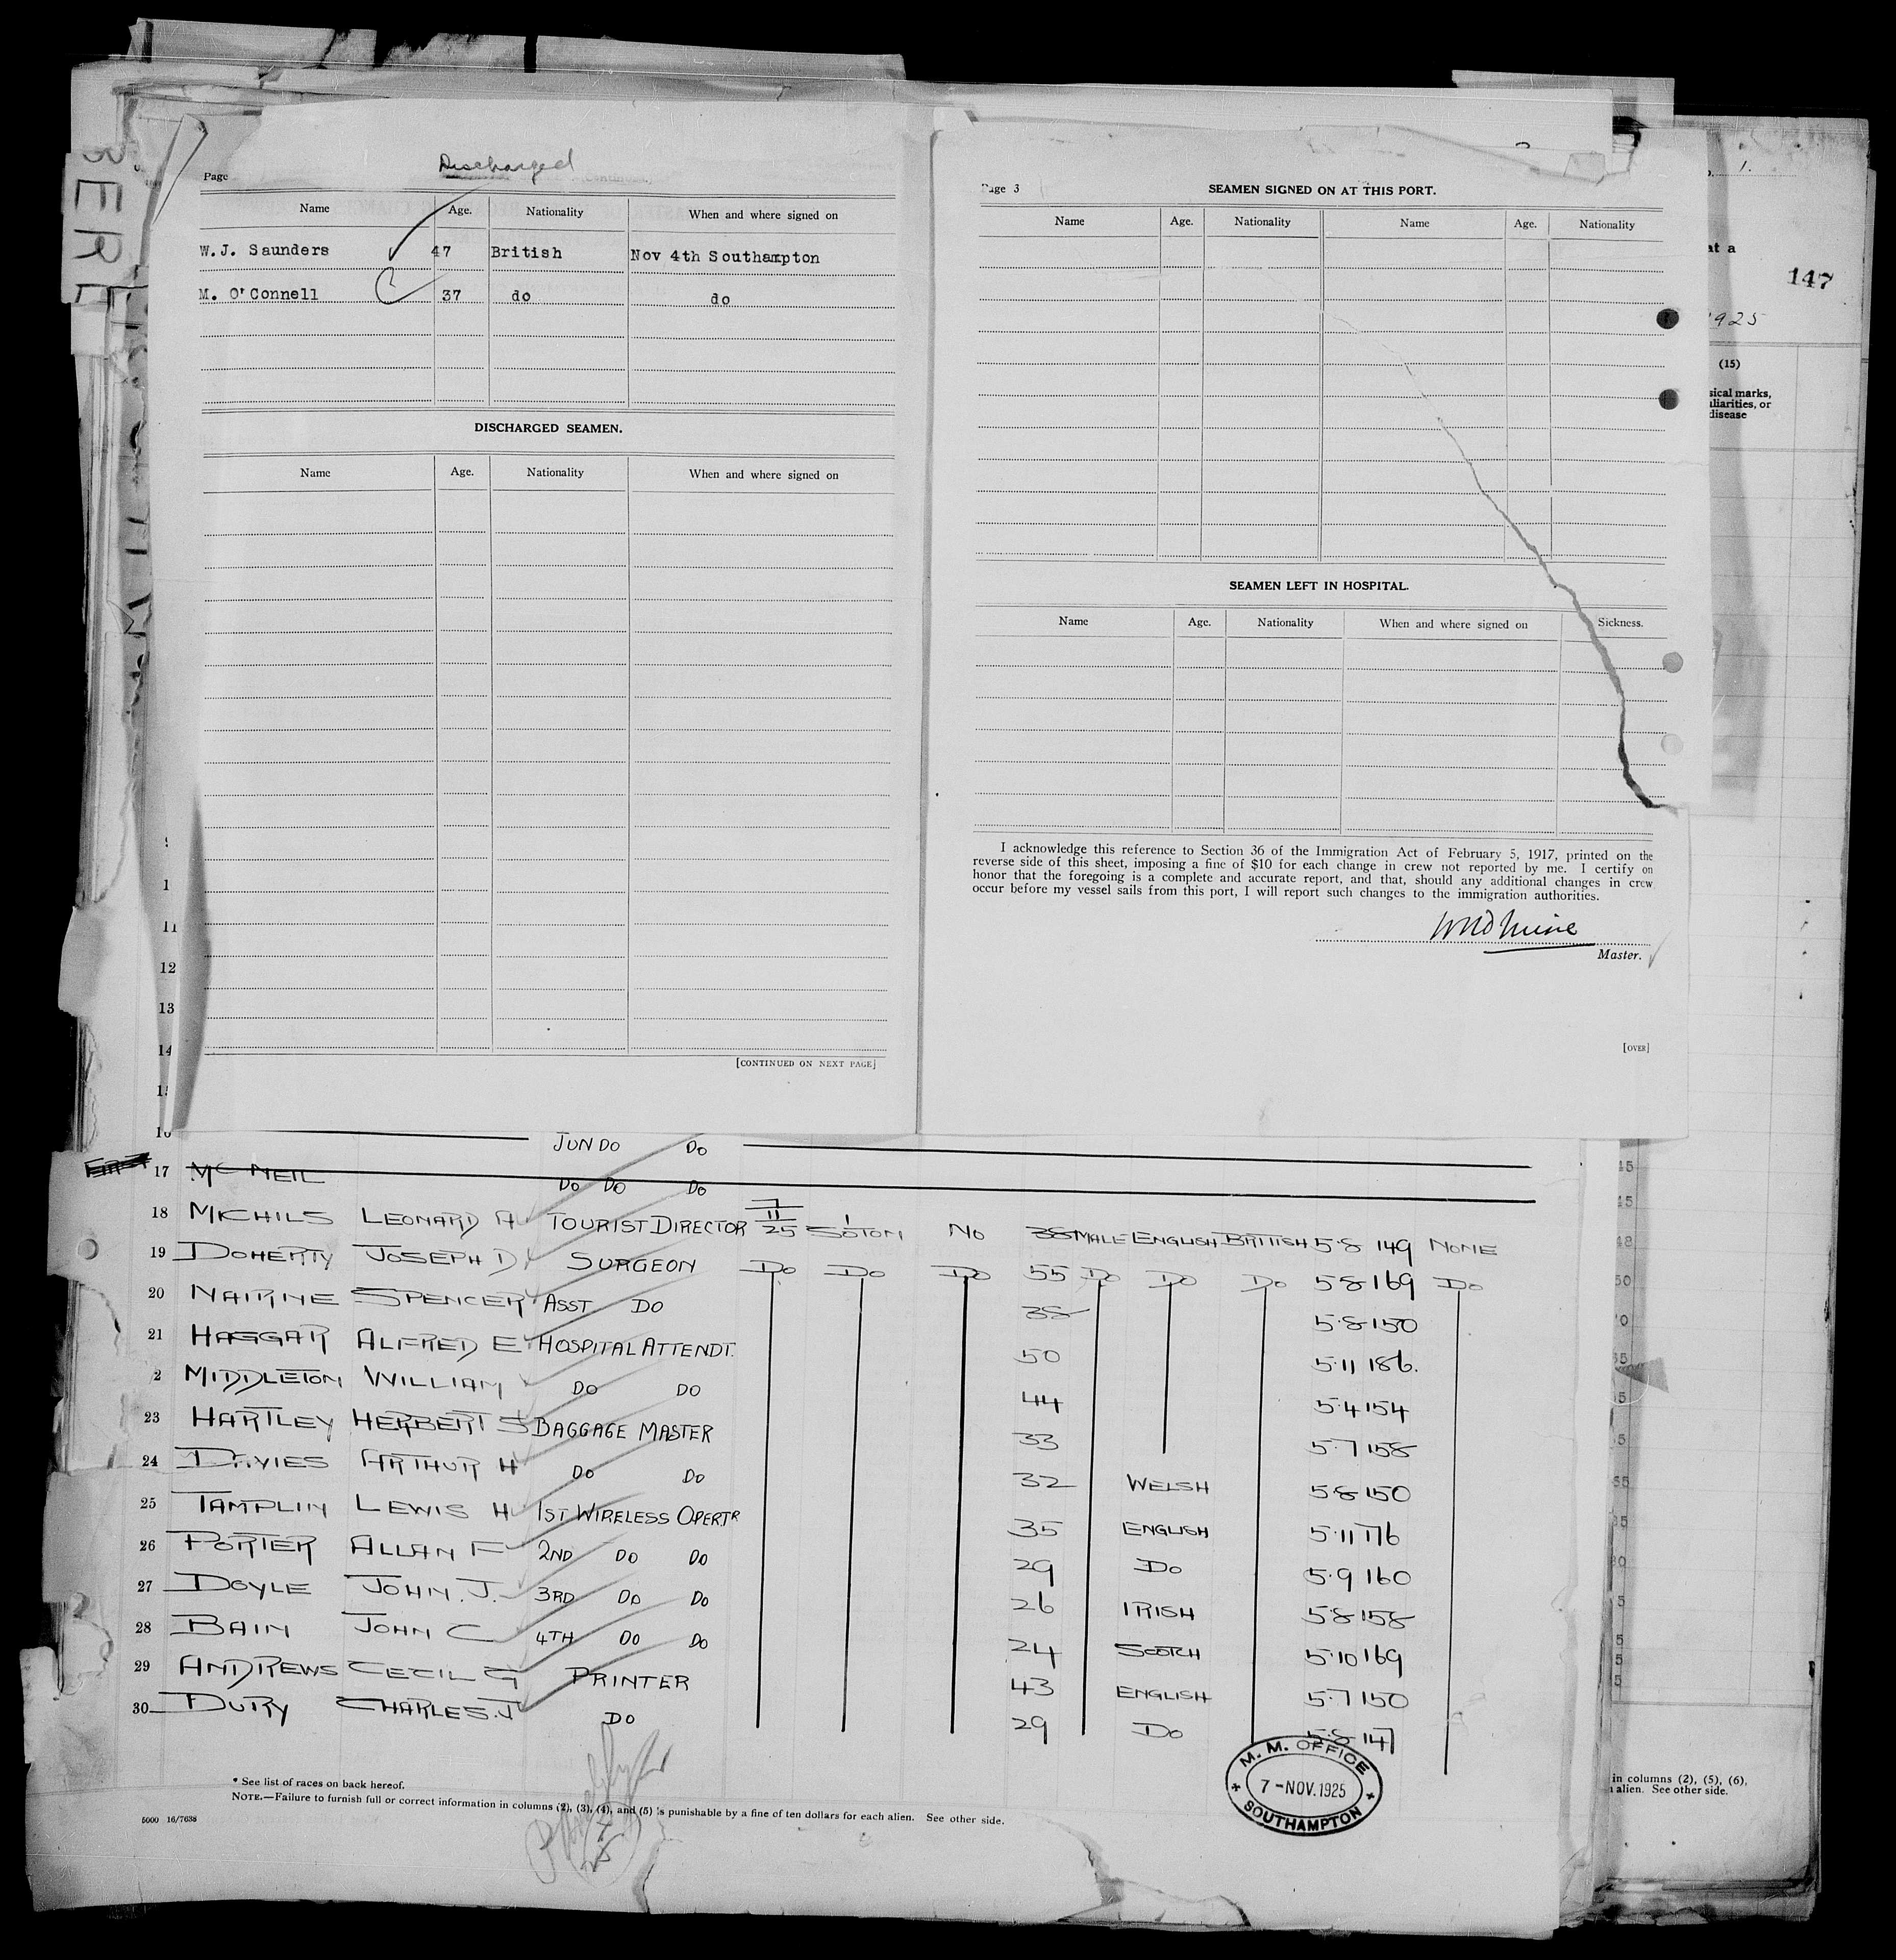 Discharged
Page
Name Age. Nationality When and where signed on
W.J. Saunders 47 British Nov 4th Southampton
M. O'Connell 37 do do
DISCHARGED SEAMEN.
Name Age. Nationality When and where signed on
[CONTINUED ON NEXT PAGE]
Page 3 SEAMEN SIGNED ON AT THIS PORT.
Name Age. Nationality Name Age. Nationality
SEAMEN LEFT IN HOSPITAL.
Name Age. Nationality When and where signed on Sickness.
I acknowledge this reference to Section 36 of the Immigration Act of February 5, 1917, printed on the
reverse side of this sheet, imposing a fine of $10 for each change in crew not reported by me. I certify on
honor that the foregoing is a complete and accurate report, and that, should any additional changes in crew
occur before my vessel sails from this port, I will report such changes to the immigration authorities.
Master.
[OVER]
1.
at a
147
1925
(15)
sical marks,
uliarities, or
disease
11
12
13
14
JUN DO DO
17 MCNEIL DO DO DO
18 MICHILS LEONARD A TOURIST DIRECTOR 7/11/25 SOTON NO 38 MALE ENGLISH BRITISH 5.8 149 NONE
19 DOHERTY JOSEPH D SURGEON DO DO DO 55 DO DO DO 5.8 169 DO
20 NAIRNE SPENCER ASST DO 38 5.8 150
21 HAGGAR ALFRED E HOSPITAL ATTENDT. 50 5.11 186.
2 MIDDLETON WILLIAM DO DO 44 5.4 154
23 HARTLEY HERBERT S BAGGAGE MASTER 33 5.7 158
24 DAVIES ARTHUR H DO DO 32 WELSH 5.8 150
25 TAMPLIN LEWIS H 1ST WIRELESS OPERTR 35 ENGLISH 5.11 176
26 PORTER ALLAN F 2ND DO DO 29 DO 5.9 160
27 DOYLE JOHN. J. 3RD DO DO 26 IRISH 5.8 158
28 BAIN JOHN C 4TH DO DO 24 SCOTCH 5.10 169
29 ANDREWS CECIL G PRINTER 43 ENGLISH 5.7 150
30 DURY CHARLES. J DO 29 DO 5.8 147
* See list of races on back hereof.
NOTE.—Failure to furnish full or correct information in columns (2), (3), (4), and (5) is punishable by a fine of ten dollars for each alien. See other side.
5000 16/7638
M. M. OFFICE
7-NOV. 1925
SOUTHAMPTON
in columns (2), (5), (6),
alien. See other side.